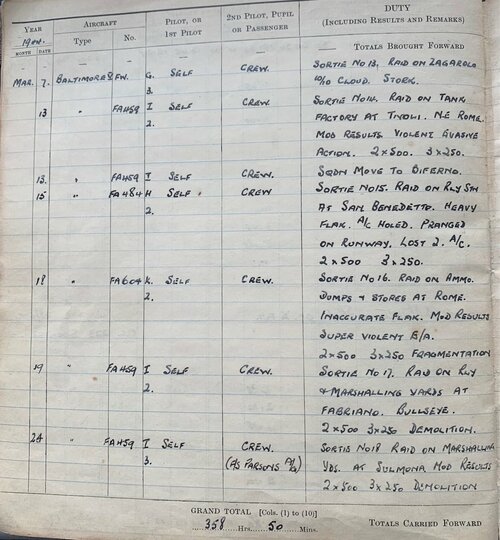 YEAR AIRCRAFT PILOT, OR 2ND PILOT, PUPIL DUTY
1944. Type No. 1ST PILOT OR PASSENGER (INCLUDING RESULTS AND REMARKS)
MONTH DATE
— — — — — — TOTALS BROUGHT FORWARD
MAR. 7. BALTIMORE FW. G. SELF CREW. SORTIE NO 13, RAID ON ZAGAROLO
3. 10/10 CLOUD. STORK.
13 " FA459 I SELF CREW. SORTIE NO 14. RAID ON TANK
2. FACTORY AT TIVOLI. N.E ROME.
MOD RESULTS. VIOLENT EVASIVE
ACTION. 2x500. 3x250.
13. " FA459 I SELF CREW. SQDN MOVE TO BIFERNO.
15 " FA484 H SELF CREW SORTIE NO 15. RAID ON RLY STN
2. AT SAN BENEDETTO. HEAVY
FLAK. A/C HOLED. PRANGED
ON RUNWAY. LOST 2. A/C.
2x500 3x250.
18 " FA604 K. SELF CREW. SORTIE NO 16. RAID ON AMMO.
2. DUMPS & STORES AT ROME.
INACCURATE FLAK. MOD RESULTS
SUPER VIOLENT E/A.
2x500 3x250 FRAGMENTATION
19 " FA459 I SELF CREW. SORTIE NO 17. RAID ON RLY
2. & MARSHALLING YARDS AT
FABRIANO. BULLSEYE.
2x500 3x250 DEMOLITION.
24 " FA459 I SELF CREW. SORTIE NO 18 RAID ON MARSHALLING
3. (F/S PARSONS A/G) YDS. AT SULMONA MOD RESULTS
2x500 3x250 DEMOLITION
GRAND TOTAL [Cols. (1) to (10)]
358 Hrs. 50 Mins. TOTALS CARRIED FORWARD